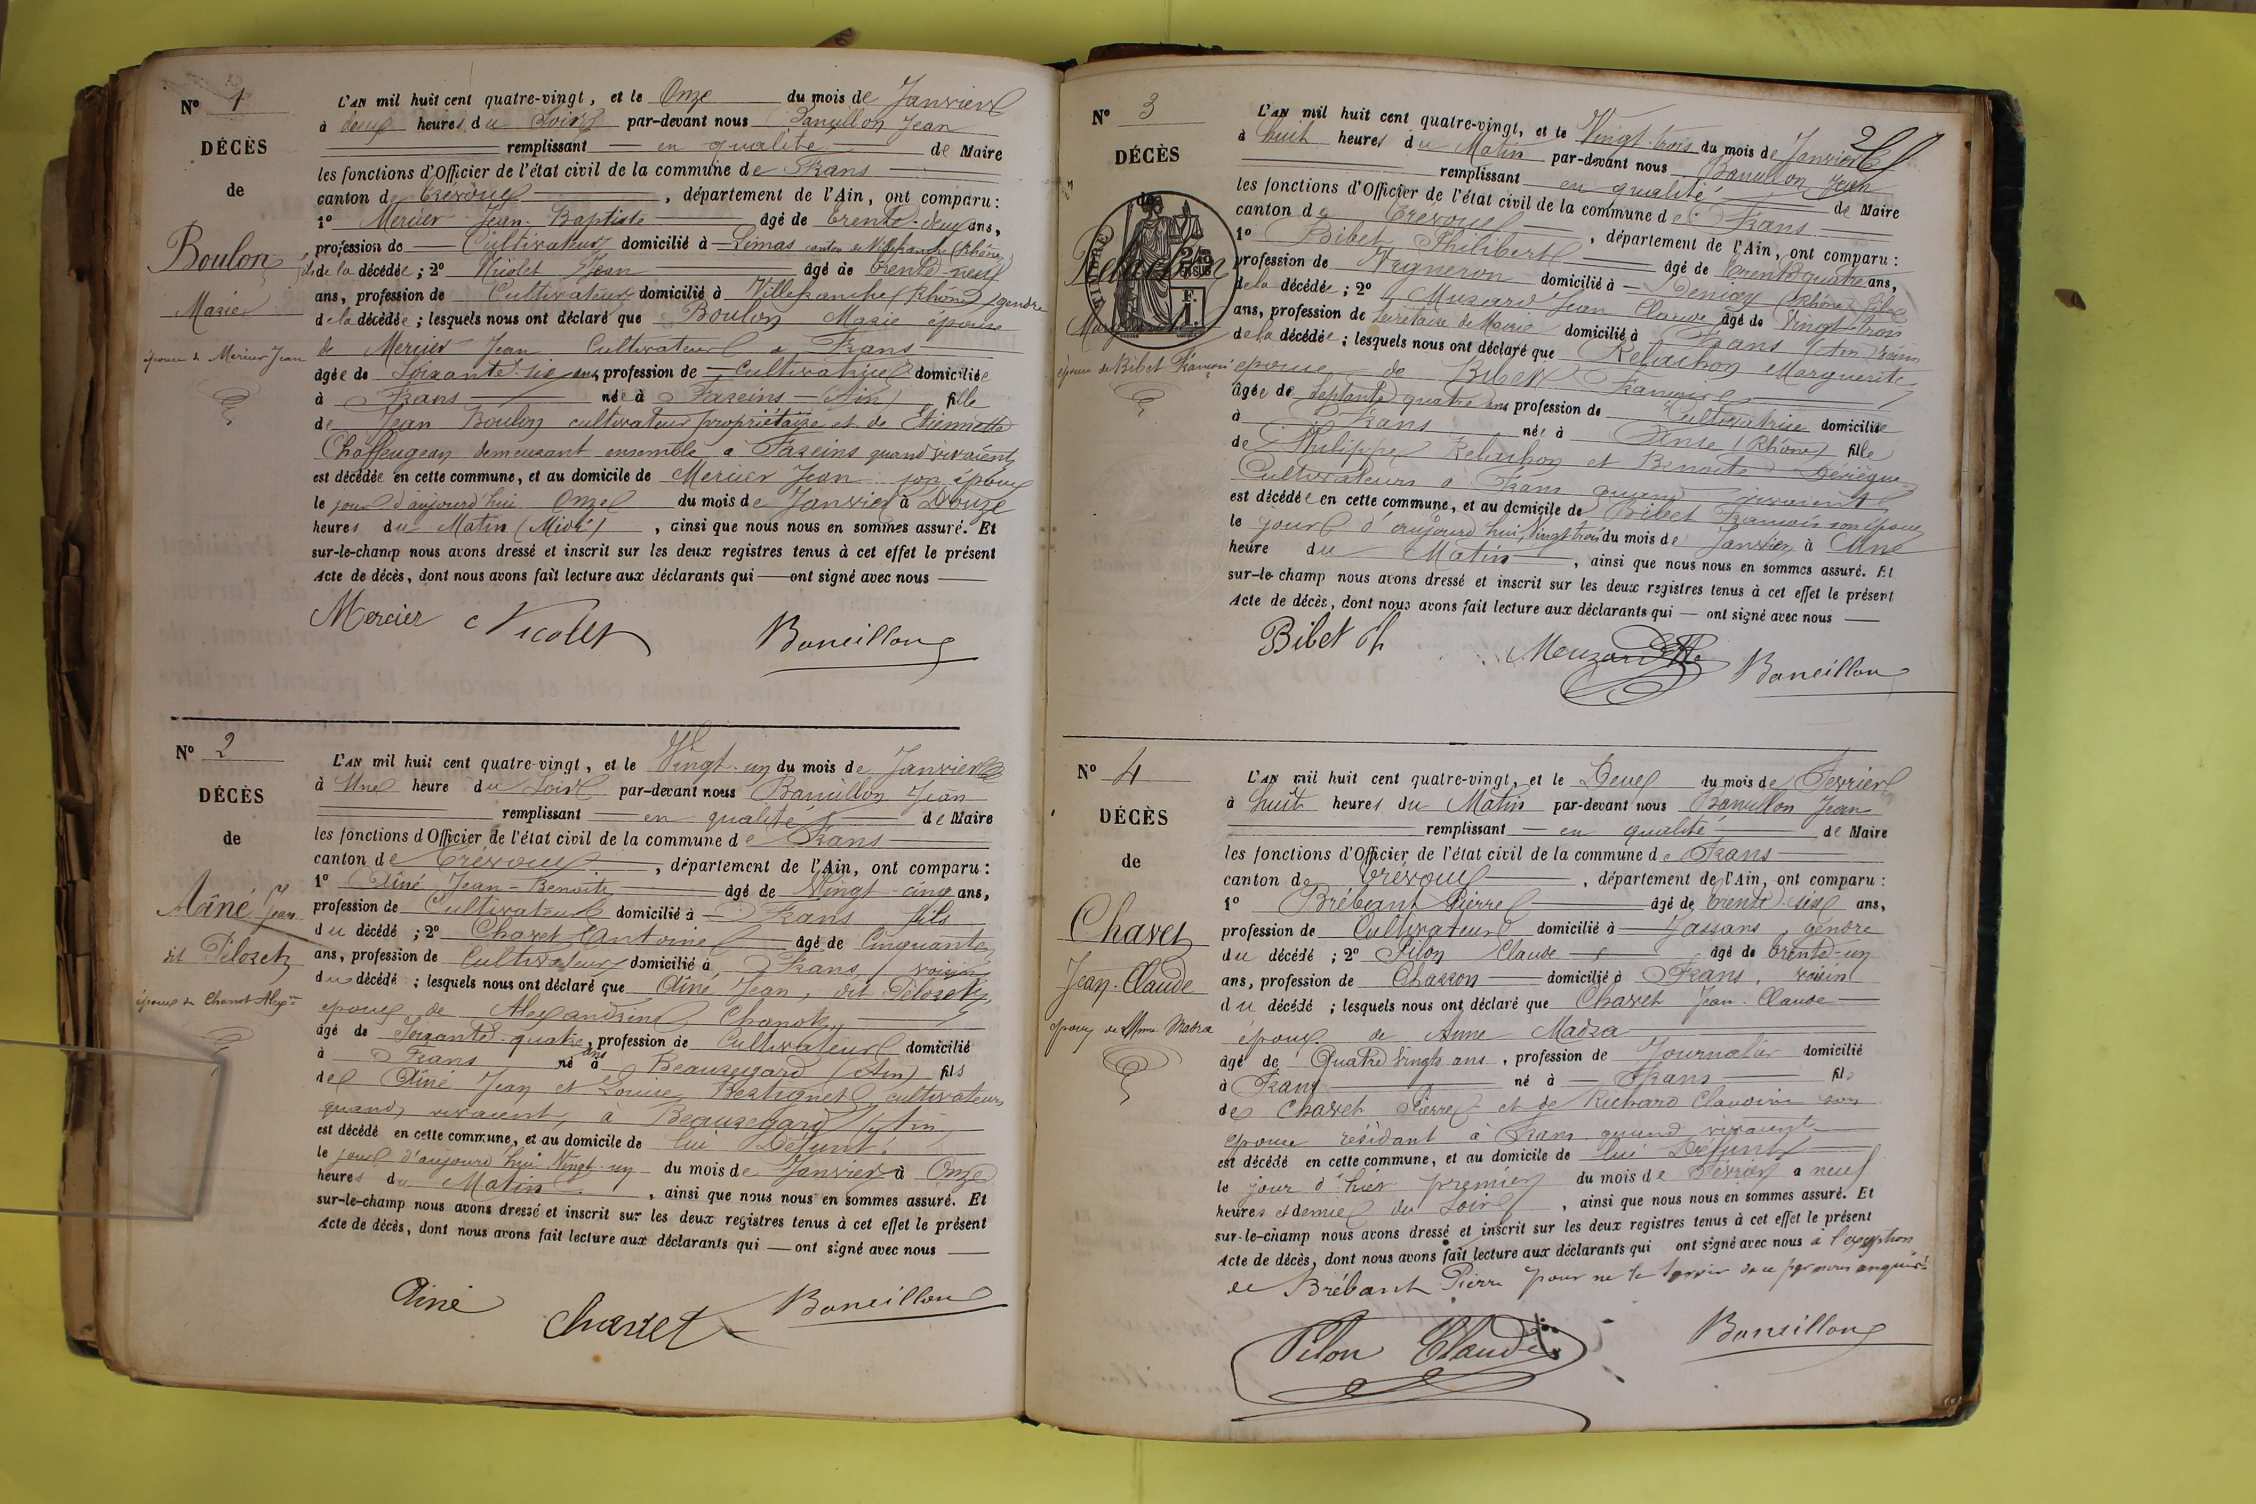 N° 1
DÉCÈS
de
Boulon
Marie
épouse de Mercier Jean
L'AN mil huit cent quatre-vingt, et le Onze du mois de Janvier
à deux heures du Soir par-devant nous Baneillon Jean
remplissant en qualité de Maire
les fonctions d'Officier de l'état civil de la commune de Frans
canton de Trévoux, département de l'Ain, ont comparu:
1° Mercier Jean-Baptiste âgé de trente-deux ans,
profession de Cultivateur domicilié à Limas canton de Villefranche (Rhône)
de la décédée; 2° Nicolet Jean âgé de trente-neuf
ans, profession de Cultivateur domicilié à Villefranche (Rhône) gendre
de la décédée; lesquels nous ont déclaré que Boulon Marie épouse
de Mercier Jean Cultivateur à Frans
âgée de Soixante-six ans, profession de Cultivatrice domiciliée
à Frans née à Fareins (Ain) fille
de Jean Boulon cultivateur propriétaire et de Etiennette
Chaffengean demeurant ensemble à Fareins quand vivaient
est décédée en cette commune, et au domicile de Mercier Jean son époux
le jour d'aujourd'hui Onze du mois de Janvier à Douze
heures du Matin (Midi), ainsi que nous nous en sommes assuré. Et
sur-le-champ nous avons dressé et inscrit sur les deux registres tenus à cet effet le présent
Acte de décès, dont nous avons fait lecture aux déclarants qui ont signé avec nous
Mercier Nicolet Baneillon
N° 2
DÉCÈS
de
Aîné Jean
dit Pélozet
époux de Chanot Alex
L'AN mil huit cent quatre-vingt, et le Vingt-un du mois de Janvier
à Une heure du Soir par-devant nous Baneillon Jean
remplissant en qualité de Maire
les fonctions d'Officier de l'état civil de la commune de Frans
canton de Trévoux, département de l'Ain, ont comparu:
1° Aîné Jean-Benoite âgé de Vingt-cinq ans,
profession de Cultivateur domicilié à Frans fils
du décédé; 2° Chavet Antoine âgé de Cinquante
ans, profession de Cultivateur domicilié à Frans, voisin
du décédé; lesquels nous ont déclaré que Aîné Jean, dit Pélozet,
époux de Alexandrine Chanot
âgé de Soixante-quatre ans, profession de Cultivateur domicilié
à Frans né à Beauregard (Ain) fils
de Aîné Jean et Louise Bertignet, cultivateurs
quand vivaient, à Beauregard (Ain)
est décédé en cette commune, et au domicile de lui Défunt
le jour d'aujourd'hui Vingt-un du mois de Janvier à Onze
heures du Matin, ainsi que nous nous en sommes assuré. Et
sur-le-champ nous avons dressé et inscrit sur les deux registres tenus à cet effet le présent
Acte de décès, dont nous avons fait lecture aux déclarants qui ont signé avec nous
Ainé Chavet Baneillon
N° 3
DÉCÈS
de
Relachon
épouse de Bibet François
L'AN mil huit cent quatre-vingt, et le Vingt-trois du mois de Janvier
à huit heures du Matin par-devant nous Baneillon Jean
remplissant en qualité de Maire
les fonctions d'Officier de l'état civil de la commune de Frans
canton de Trévoux, département de l'Ain, ont comparu:
1° Bibet Philibert âgé de trente-quatre ans,
profession de Vigneron domicilié à Denicey (Rhône) fils
de la décédée; 2° Muzard Jean Claude âgé de Vingt-trois
ans, profession de Secrétaire de Mairie domicilié à Frans (Ain) voisin
de la décédée; lesquels nous ont déclaré que Relachon Marguerite
épouse de Bibet François
âgée de septante quatre ans profession de Cultivatrice domiciliée
à Frans née à Anse (Rhône) fille
de Philippe Relachon et Benoite
Cultivateurs à Frans quand vivaient
est décédée en cette commune, et au domicile de Bibet François son époux
le jour d'aujourd'hui Vingt-trois du mois de Janvier à Une
heure du Matin, ainsi que nous nous en sommes assuré. Et
sur-le-champ nous avons dressé et inscrit sur les deux registres tenus à cet effet le présent
Acte de décès, dont nous avons fait lecture aux déclarants qui ont signé avec nous
Bibet Ph Meuzard Baneillon
N° 4
DÉCÈS
de
Chavet
Jean-Claude
époux de Anne Madra
L'AN mil huit cent quatre-vingt, et le Deux du mois de Février
à huit heures du Matin par-devant nous Baneillon Jean
remplissant en qualité de Maire
les fonctions d'Officier de l'état civil de la commune de Frans
canton de Trévoux, département de l'Ain, ont comparu:
1° Brébant Pierre âgé de trente-six ans,
profession de Cultivateur domicilié à Jassans, gendre
du décédé; 2° Pilon Claude âgé de trente-un
ans, profession de Charron domicilié à Frans, voisin
du décédé; lesquels nous ont déclaré que Chavet Jean-Claude
époux de Anne Madra
âgé de Quatre Vingts ans, profession de Journalier domicilié
à Frans né à Frans fils
de Chavet Pierre et de Richard Claudine son
épouse résidant à Frans quand vivaient
est décédé en cette commune, et au domicile de lui Défunt
le jour d'hier premier du mois de Février à neuf
heures et demie du Soir, ainsi que nous nous en sommes assuré. Et
sur-le-champ nous avons dressé et inscrit sur les deux registres tenus à cet effet le présent
Acte de décès, dont nous avons fait lecture aux déclarants qui ont signé avec nous à l'exception
de Brébant Pierre pour ne le savoir de ce par nous enquis
Pilon Claude Baneillon